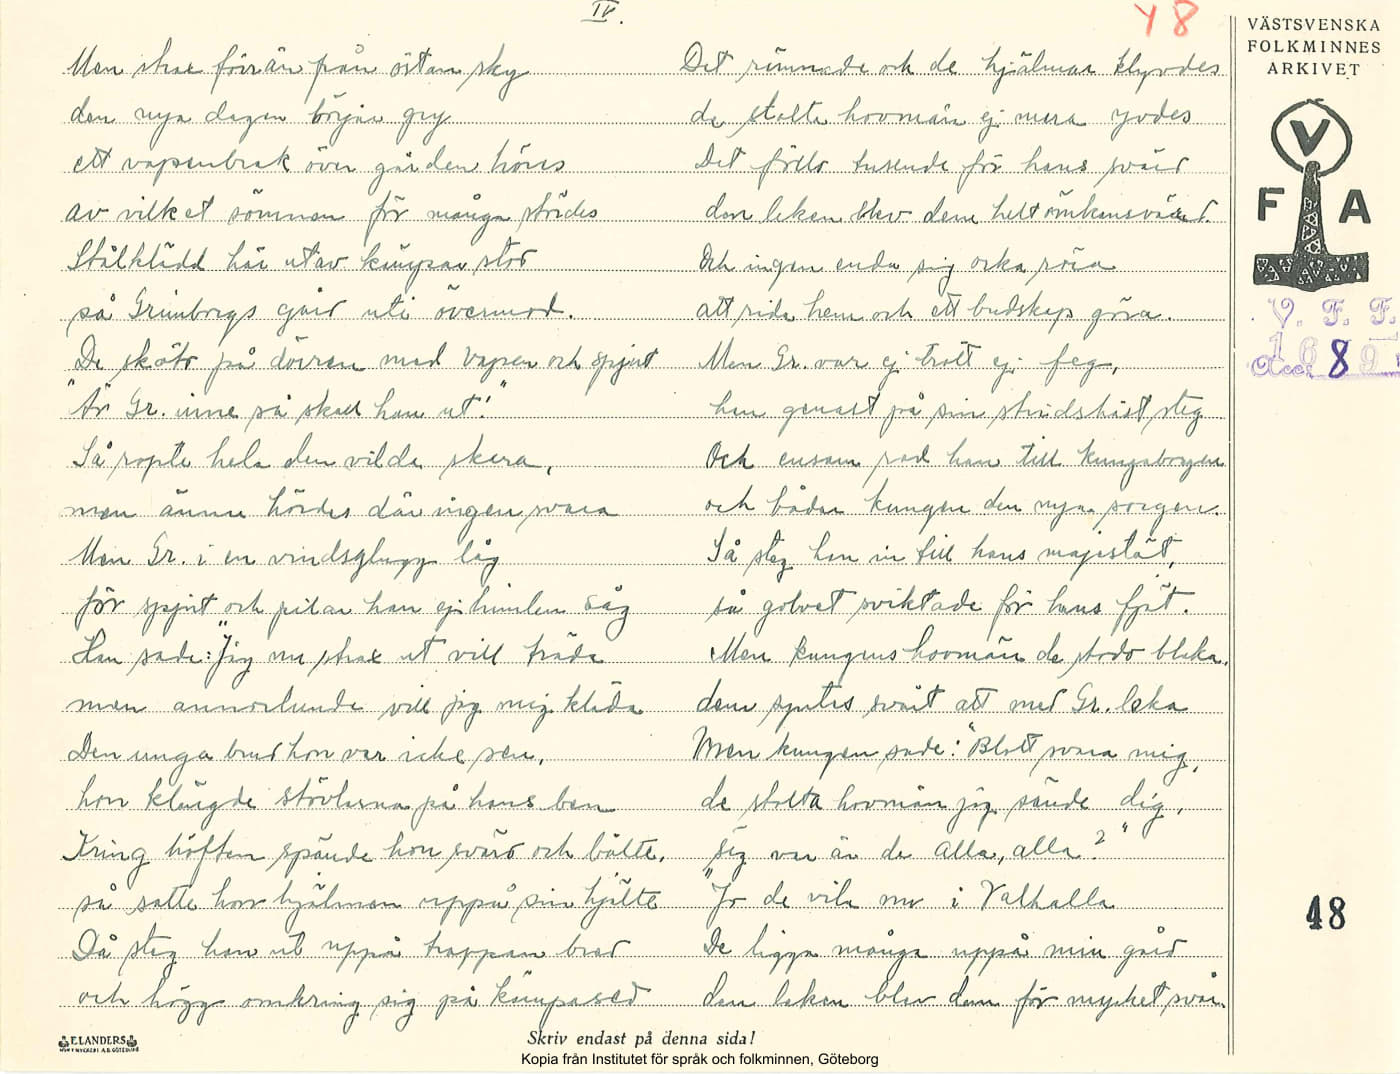 IV.
48
Men strax förrän från östan sky
den nya dagen började gry
ett vapenbrak över gården höres
av vilket sömnen för många stördes
Stålklädd här utav kämpar stod
på Grimborgs gård uti övermod.
De stöto på dörren med vapen och spjut
"Är Gr. inne så skall han ut!"
Så ropte hela den vilda skara,
men ännu hördes där ingen svara
Men Gr. i en vindsglugg låg
för spjut och pilar han ej himlen såg
Han sade: "Jag nu strax ut vill träda
men annorlunda vill jag mig kläda
Den unga brud hon var icke sen,
hon klängde stövlarna på hans ben
Kring höften spände hon svärd och bälte,
så satte hon hjälmen uppå sin hjälte
Då steg han ut uppå trappan bred
och högg omkring sig på kämpased
Det rämnade och de hjälmar klyvdes
de stolta hovmän ej mera yvdes
Det föllo tusende för hans svärd
den leken blev dem helt ömkansvärd.
Och ingen enda sig orka röra
att rida hem och ett budskap göra.
Men Gr. var ej trött ej feg,
han genast på sin stridshäst steg
Och ensam red han till kungaborgen
och bådar kungen den nya sorgen.
Så steg han in till hans majestät,
så golvet sviktade för hans fjät.
Men kungens hovmän de stodo bleka,
dem syntes svårt att med Gr. leka
Men kungen sade: "Blott svara mig,
de stolta hovmän jag sände dig,
säg var är de alla, alla?"
"Jo de vila nu i Valhalla
De ligga många uppå min gård
den leken blev dem för mycket svår.
VÄSTSVENSKA
FOLKMINNES
ARKIVET
V
F A
V. F. F.
Acc. 1689
48
ELANDERS
BOKTRYCKERI A.B. GÖTEBORG
Skriv endast på denna sida!
Kopia från Institutet för språk och folkminnen, Göteborg